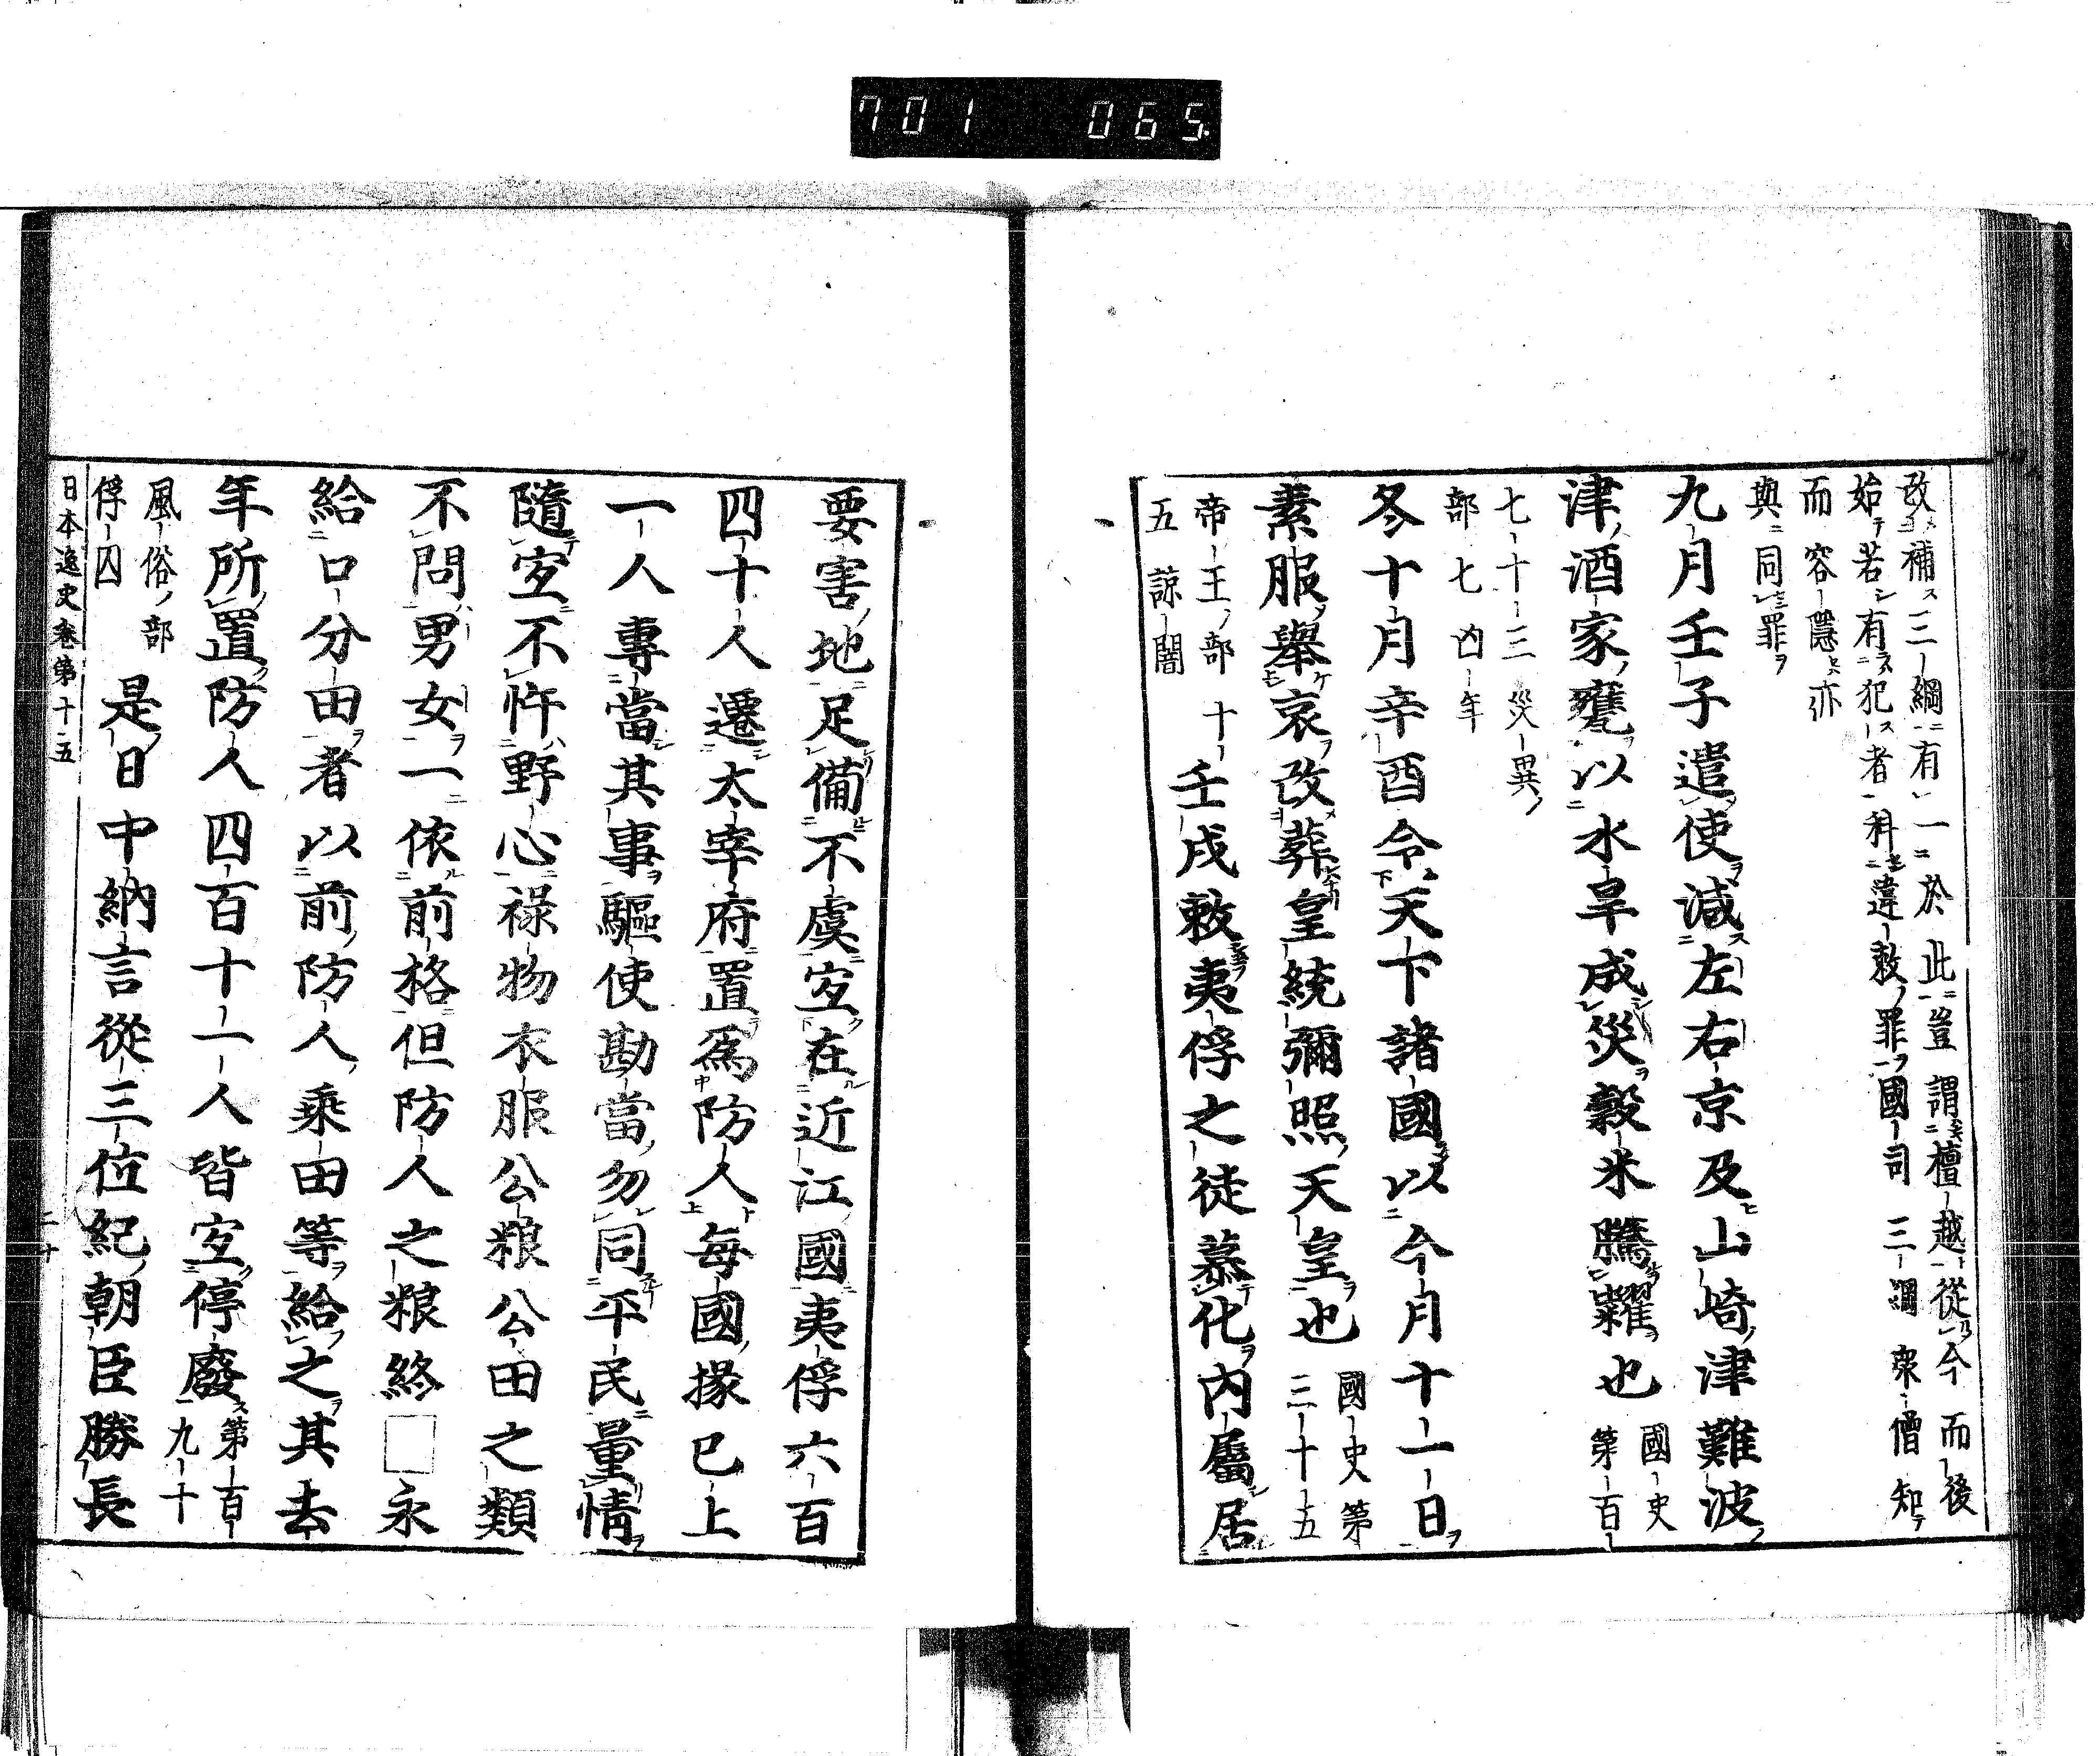 701 065
改補三綱有一於此豈謂檀越從今而後
始若有犯者科違敕罪國司三綱衆僧知
而容隱亦
與同罪
九月壬子遣使減左右京及山崎津難波
津酒家甕以水旱成災穀米騰糶也國史第百
七十三災異
部七凶年
冬十月辛酉令天下諸國以今月十一日
素服舉哀改葬皇統彌照天皇也國史第三十五
帝王部十
五諒闇
壬戌敕夷俘之徒慕化內屬居
要害地足備不虞宐在近江國夷俘六百
四十人遷太宰府置爲防人每國掾已上
一人專當其事驅使勘當勿同平民量情
隨宐不忤野心祿物衣服公粮公田之類
不問男女一依前格但防人之粮終□永
給口分田者以前防人乘田等給之其去
年所置防人四百十一人皆宐停廢第百九十
風俗部
俘囚
是日中納言從三位紀朝臣勝長
日本逸史卷第十五 二十